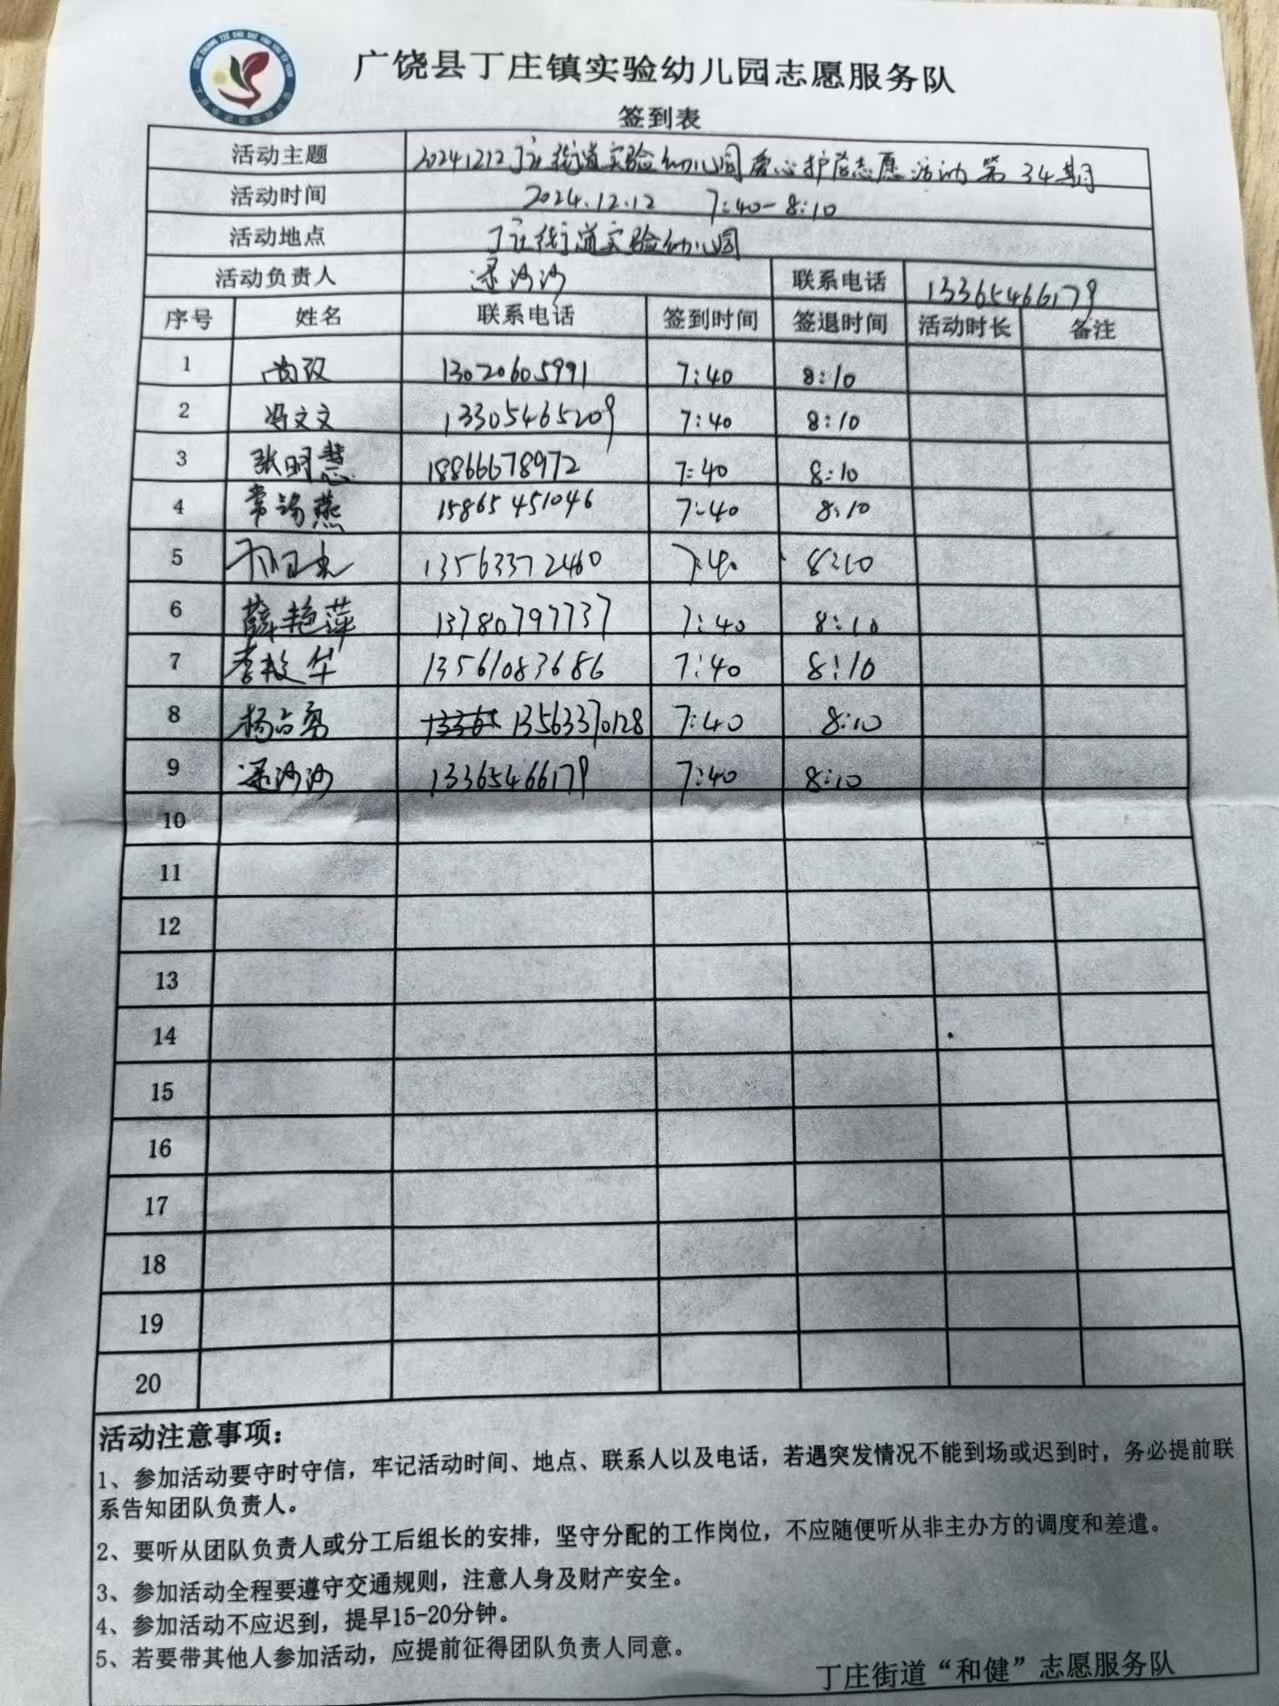 广饶县丁庄镇实验幼儿园志愿服务队
签到表
活动主题 20241212丁庄街道实验幼儿园爱心护苗志愿活动第34期
活动时间 2024.12.12 7:40-8:10
活动地点 丁庄街道实验幼儿园
活动负责人 梁沙沙 联系电话 13365466179
序号 姓名 联系电话 签到时间 签退时间 活动时长 备注
1 13020605991 7:40 8:10
2 冯文文 13305465209 7:40 8:10
3 张明慧 18866678972 7:40 8:10
4 常海燕 15865451046 7:40 8:10
5 13563372460 7:40 8:10
6 薛艳萍 13780797737 7:40 8:10
7 李校华 13561083686 7:40 8:10
8 杨占勇 13563370128 7:40 8:10
9 梁沙沙 13365466179 7:40 8:10
10
11
12
13
14
15
16
17
18
19
20
活动注意事项:
1、参加活动要守时守信，牢记活动时间、地点、联系人以及电话，若遇突发情况不能到场或迟到时，务必提前联
系告知团队负责人。
2、要听从团队负责人或分工后组长的安排，坚守分配的工作岗位，不应随便听从非主办方的调度和差遣。
3、参加活动全程要遵守交通规则，注意人身及财产安全。
4、参加活动不应迟到，提早15-20分钟。
5、若要带其他人参加活动，应提前征得团队负责人同意。
丁庄街道“和健”志愿服务队